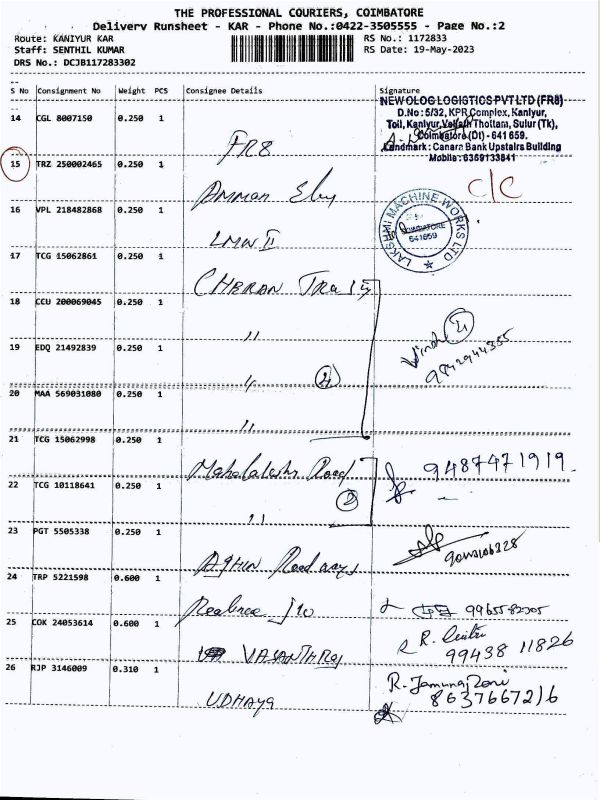 THE PROFESSIONAL COURIERS, COIMBATORE
Delivery Runsheet - KAR - Phone No.:0422-3505555 - Page No.:2
Route: KANIYUR KAR RS No.: 1172833
Staff: SENTHIL KUMAR RS Date: 19-May-2023
DRS No.: DCJB117283302
S No Consignment No Weight PCS Consignee Details Signature
NEW OLOG LOGISTICS PVT LTD (FR8)
D.No: 5/32, KPR Complex, Kaniyur,
Toll, Kaniyur, Thottam, Sulur (Tk),
Coimbatore (Dt) - 641 659.
Landmark: Canara Bank Upstairs Building
Mobile: 6369133841
14 CGL 8007150 0.250 1 FR8
15 TRZ 250002465 0.250 1 Amman C/C
16 VPL 218482868 0.250 1 LMW II
LAKSHMI MACHINE WORKS LTD
COIMBATORE
641659
17 TCG 15062861 0.250 1 CHERAN
18 CCU 200069045 0.250 1 "
19 EDQ 21492839 0.250 1 " 4
4
9842944355
20 MAA 569031080 0.250 1 "
21 TCG 15062998 0.250 1 Road 9487471919.
22 TCG 10118641 0.250 1 " 2
23 PGT 5505338 0.250 1 Roadways
24 TRP 5221598 0.600 1 J10
25 COK 24053614 0.600 1 VASANTHRAJ R.
99438 11826
26 RJP 3146009 0.310 1 UDHAYA R. Jamuna Rani
8637667216